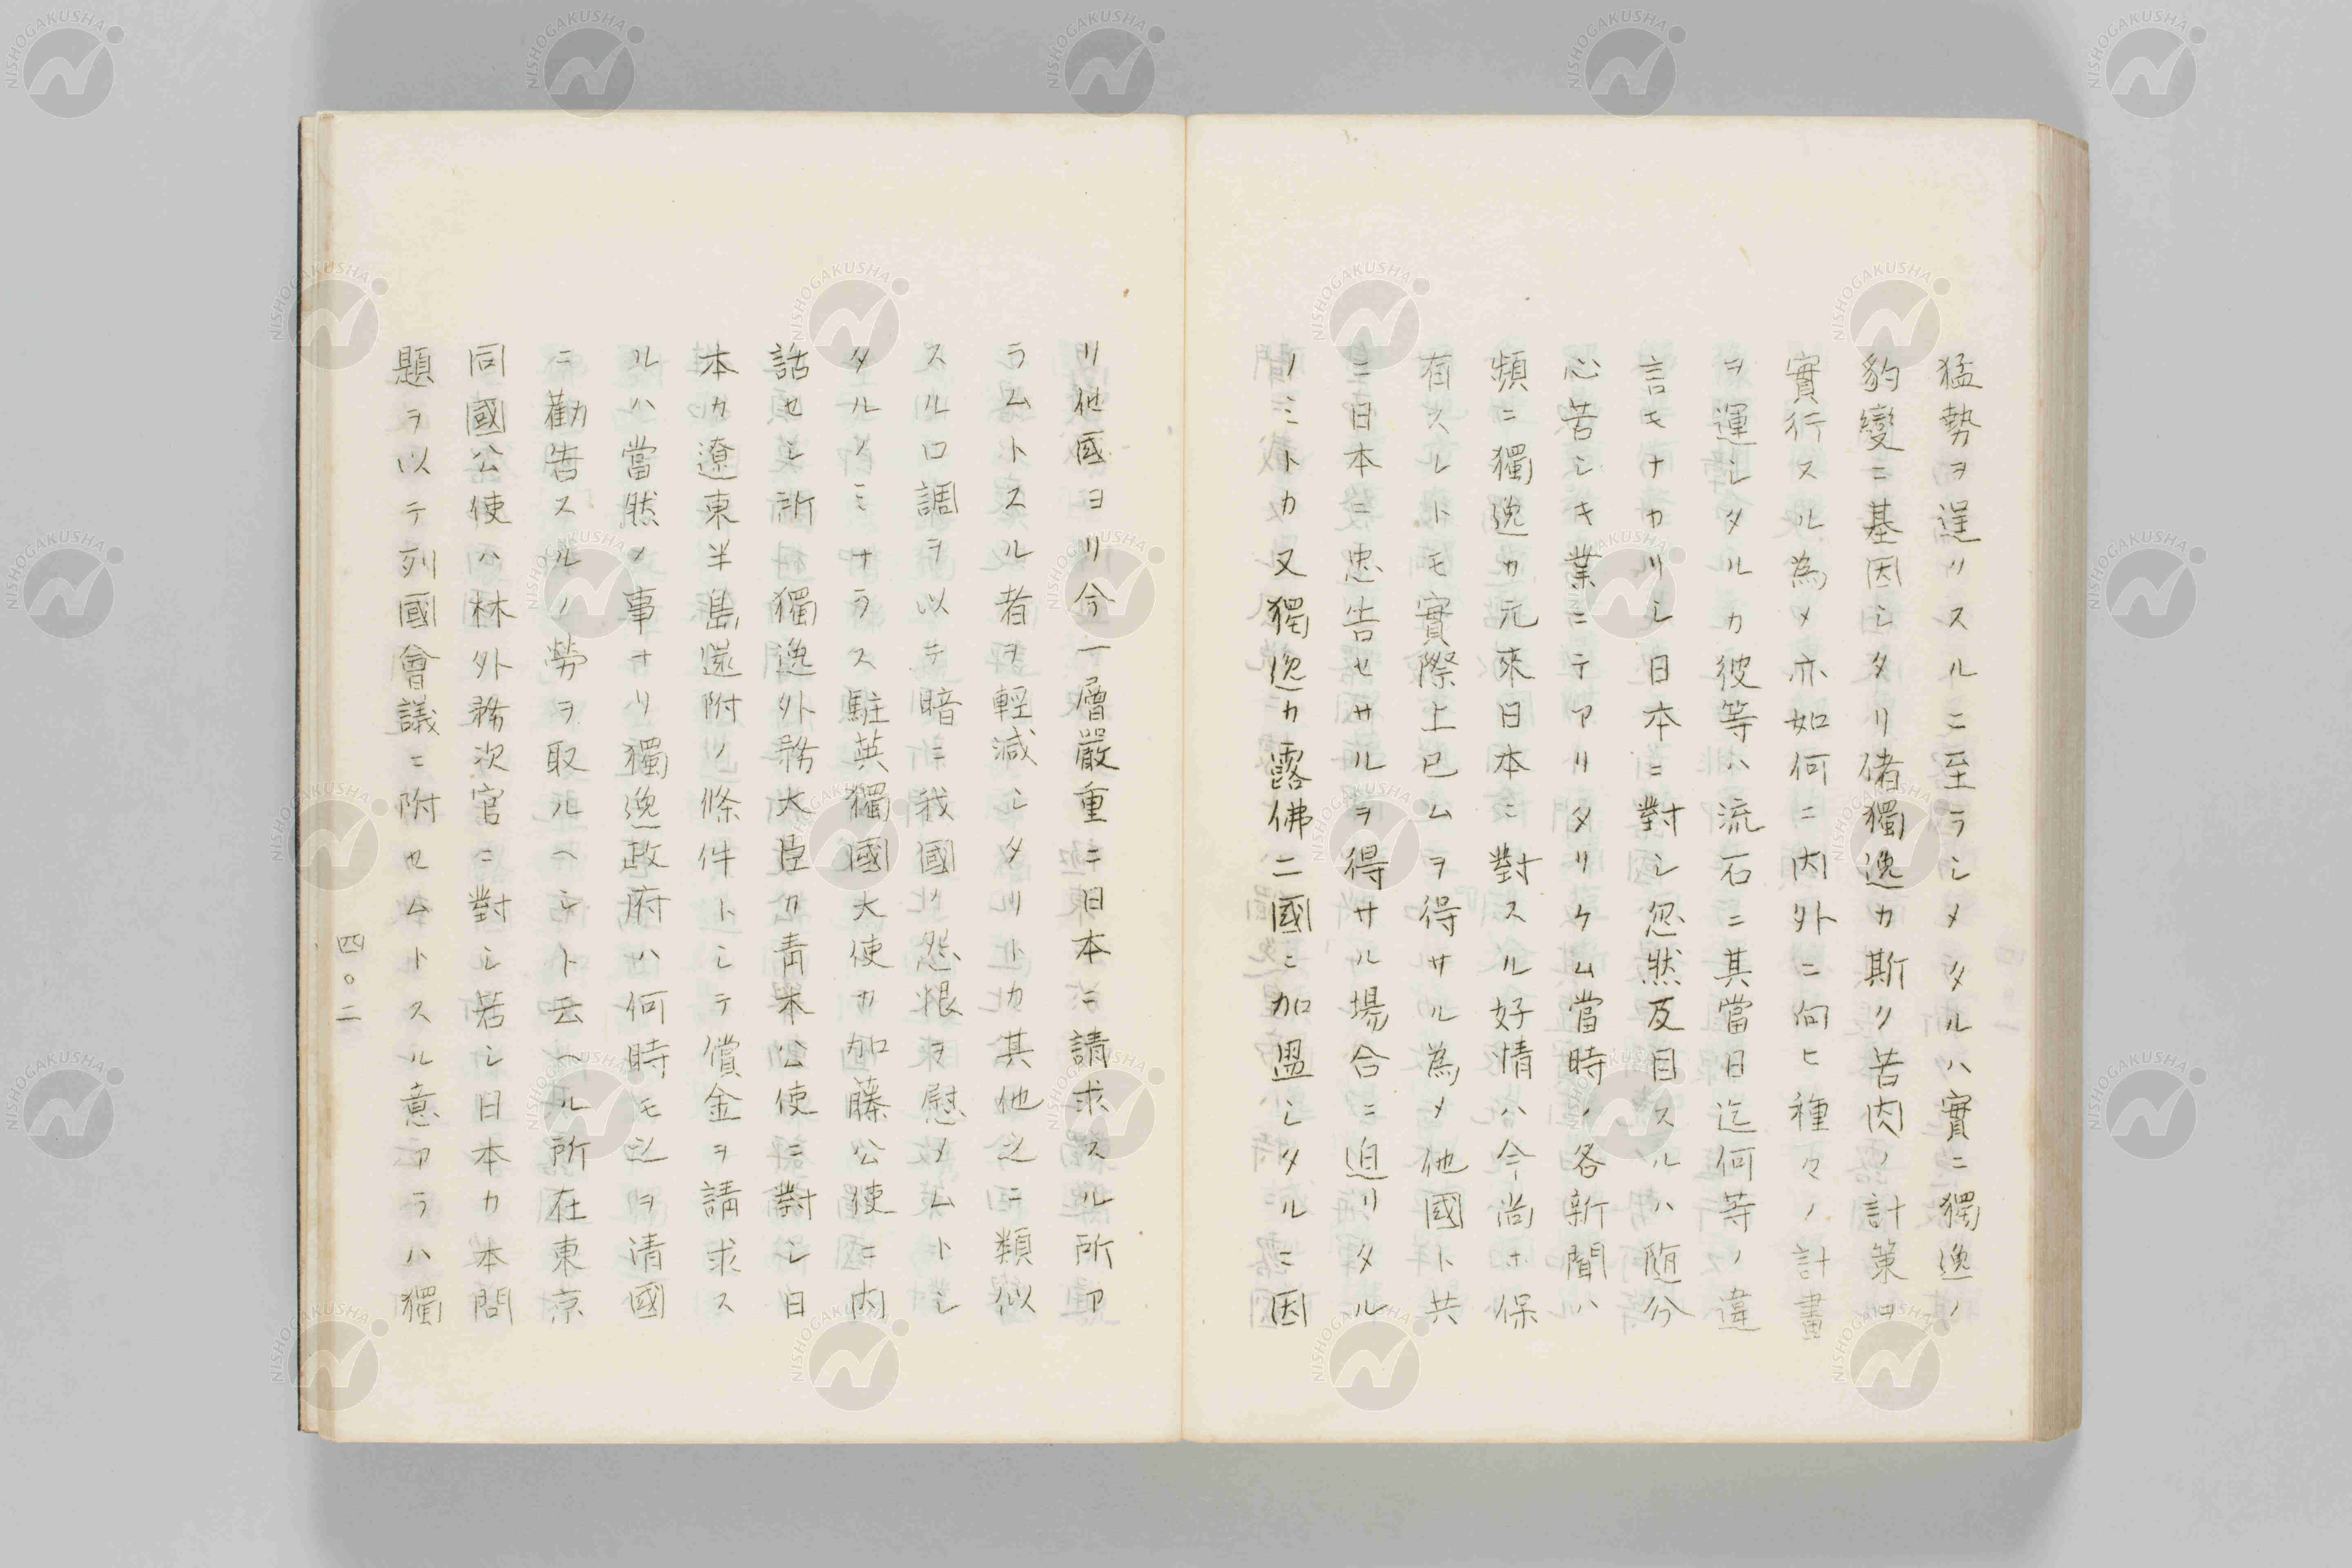 猛勢ヲ逞リスルニ至ラシメタルハ實ニ獨逸ノ
豹變ニ基因シタリ偖獨逸カ斯ク苦肉ノ計策ヲ
實行スル為メ亦如何ニ内外ニ向ヒ種々ノ計畫
ヲ運シタルカ彼等ハ流石ニ其當日迄何等ノ違
言モナカリシ日本ニ對シ忽然反目スルハ随分
心苦シキ業ニテアリタリケム當時ノ各新聞ハ
頻ニ獨逸カ元來日本ニ對スル好情ハ今尚ホ保
有スレトモ實際上已ムヲ得サル為メ他國ト共
ニ日本ニ忠告セサルヲ得サル場合ニ迫リタル
ノミトカ又獨逸カ露佛二國ニ加盟シタルニ因
リ他國ヨリ今一層嚴重ニ日本ニ請求スル所ア
ラムトスル者ヲ輕減シタリトカ其他之ニ類似
スル口調ヲ以テ暗ニ我國ノ怨恨ヲ慰メムトシ
タルノミナラス駐英獨國大使カ加藤公使ニ内
話セシ所獨逸外務大臣カ青木公使ニ對シ日
本カ遼東半島還附ノ條件トシテ償金ヲ請求ス
ルハ當然ノ事ナリ獨逸政府ハ何時モ之ヲ清國
ニ勸告スルノ勞ヲ取ルヘシト云ヘル所在東京
同國公使ハ林外務次官ニ對シ若シ日本カ本問
題ヲ以テ列國會議ニ附セムトスル意アラハ獨
四〇二
NISHOGAKUSHA